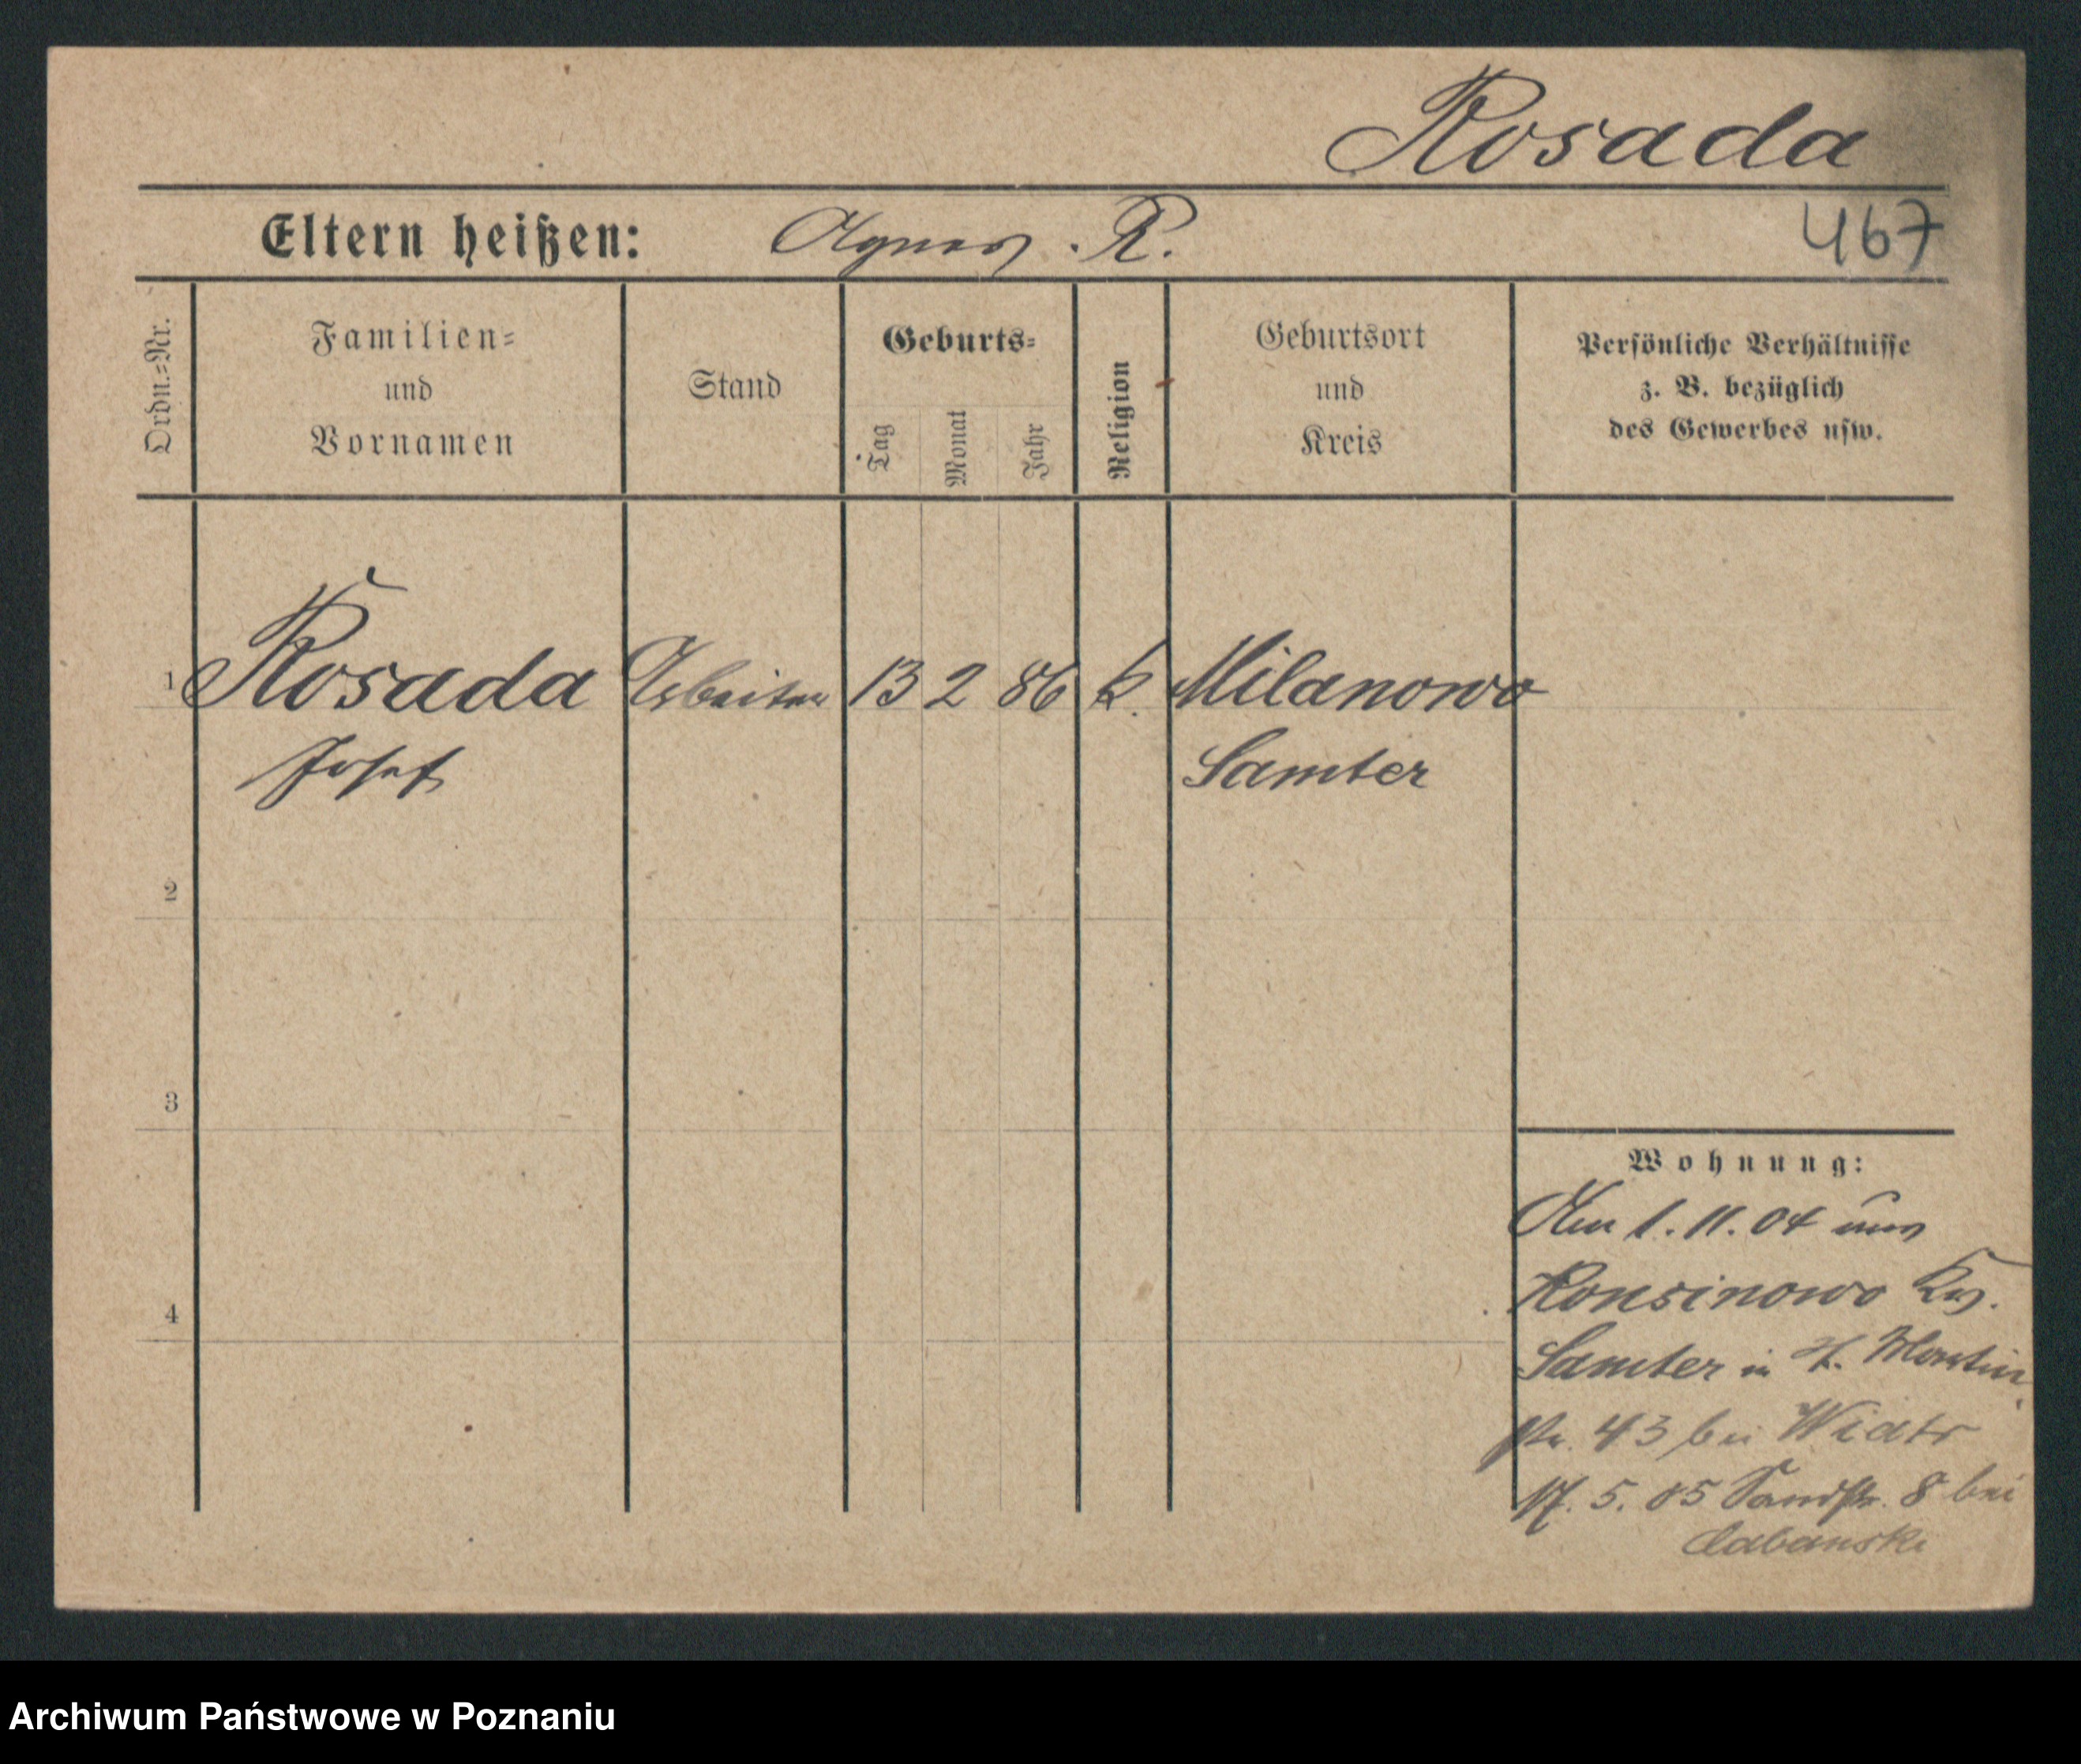 Rosada
Eltern heißen: Agnes . R.
467
Ordn.=Nr.
Familien=
und
Vornamen
Stand
Geburts=
Tag
Monat
Jahr
Religion
Geburtsort
und
Kreis
Persönliche Verhältnisse
z. B. bezüglich
des Gewerbes usw.
1 Rosada Arbeiter 13 2 86 k. Milanowo
Josef Samter
2
3
4
Wohnung:
Am 1. 11. 04 aus
Samter in St. Martin
str. 43 bei Wiatr
17. 5. 05 Sandstr. 8 bei
Archiwum Państwowe w Poznaniu